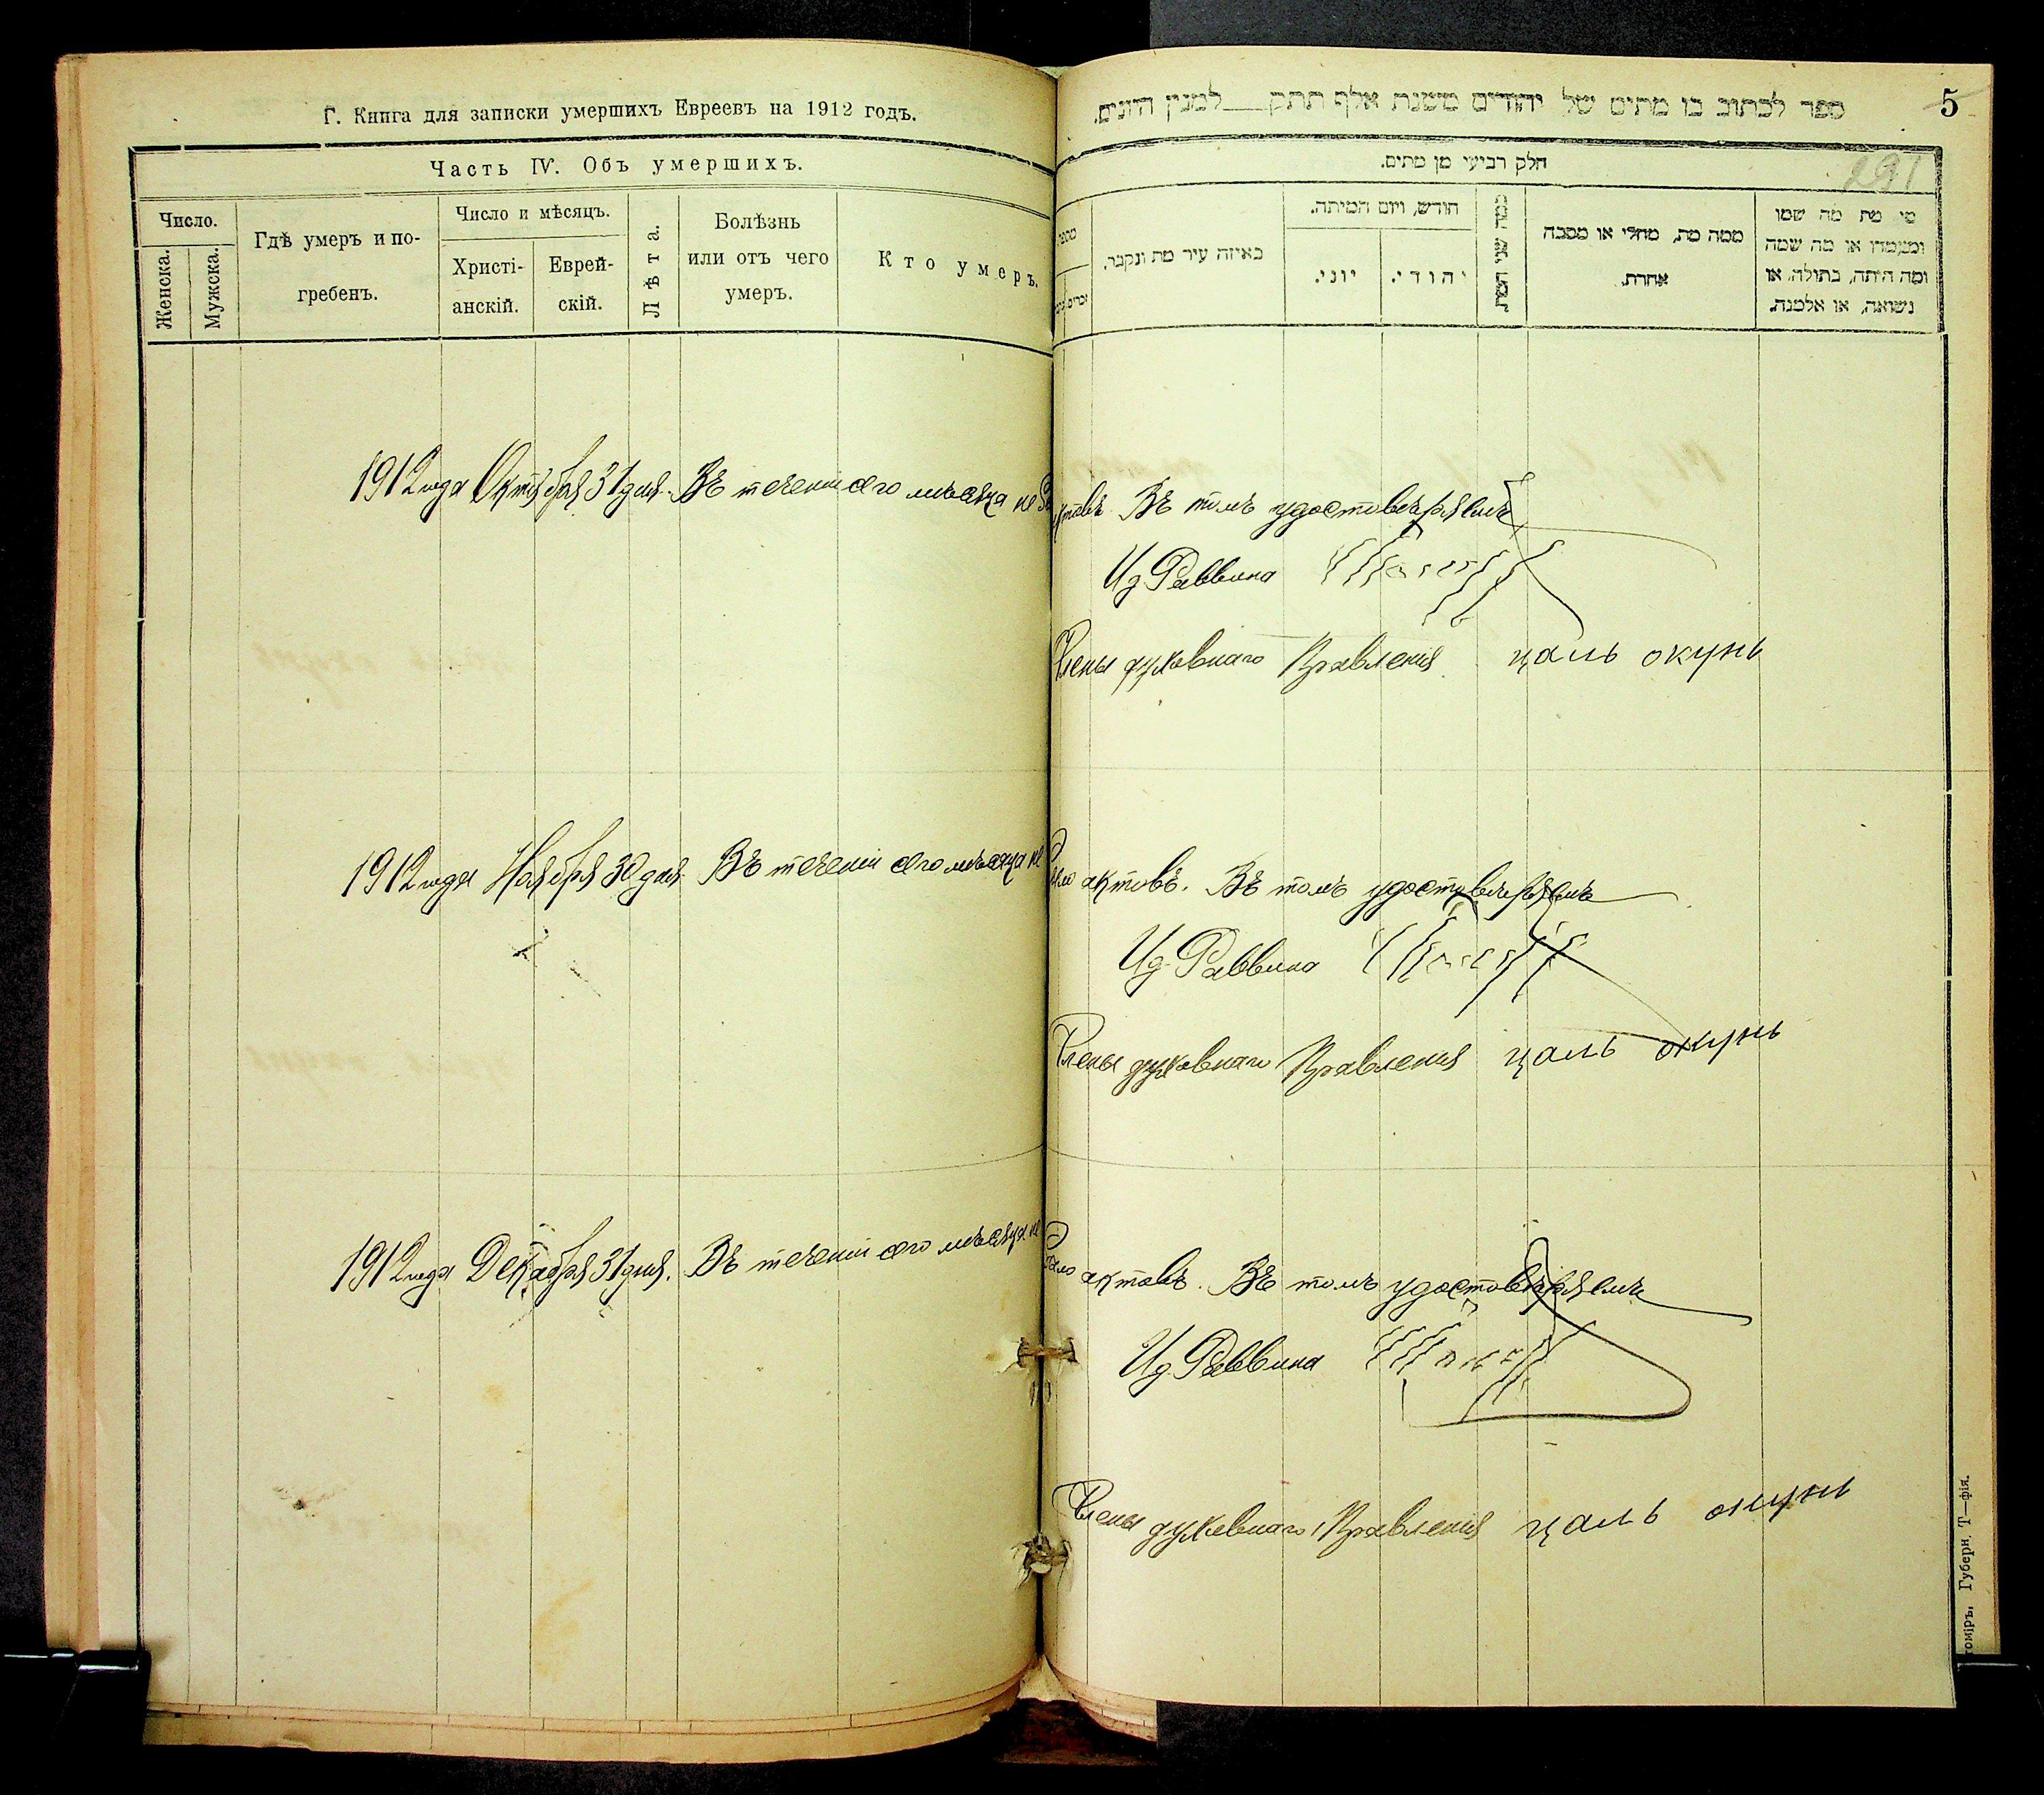 Г. Книга для записки умершихъ Евреевъ на 1912 годъ.
Часть IV. Объ умершихъ.
Число.
Женска.
Мужска.
Гдѣ умеръ и по-
гребенъ.
Число и мѣсяцъ.
Христі-
анскій.
Еврей-
скій.
Лѣта.
Болѣзнь
или отъ чего
умеръ.
Кто умеръ.
1912 года Октября 31 дня. Въ теченіи сего мѣсяца не
1912 года Ноября 30 дня. Въ теченіи сего мѣсяца не
1912 года Декабря 31 дня. Въ теченіи сего мѣсяца не
5
ספר לכתוב בו מתים של יהודים משנת אלף תתק למנין היונים.
291
חלק רביעי מן מתים.
מי מת מה שמו
ומעמדו או מה שמה
ומה היתה, בתולה, או
נשואה, או אלמנה.
ממה מת, מחלי או מסבה
אחרת.
חודש, ויום המיתה.
יהודי.
יוני.
באיזה עיר מת ונקבר.
Въ томъ удостовѣряемъ
Ид. Раввина
Члены духовнаго Правленія цаль окунь
было актовъ. Въ томъ удостовѣряемъ
Ид. Раввина
Члены духовнаго Правленія цаль окунь
было актовъ. Въ томъ удостовѣряемъ
Ид. Раввина
Члены духовнаго Правленія цаль окунь
Губерн. Т—фія.